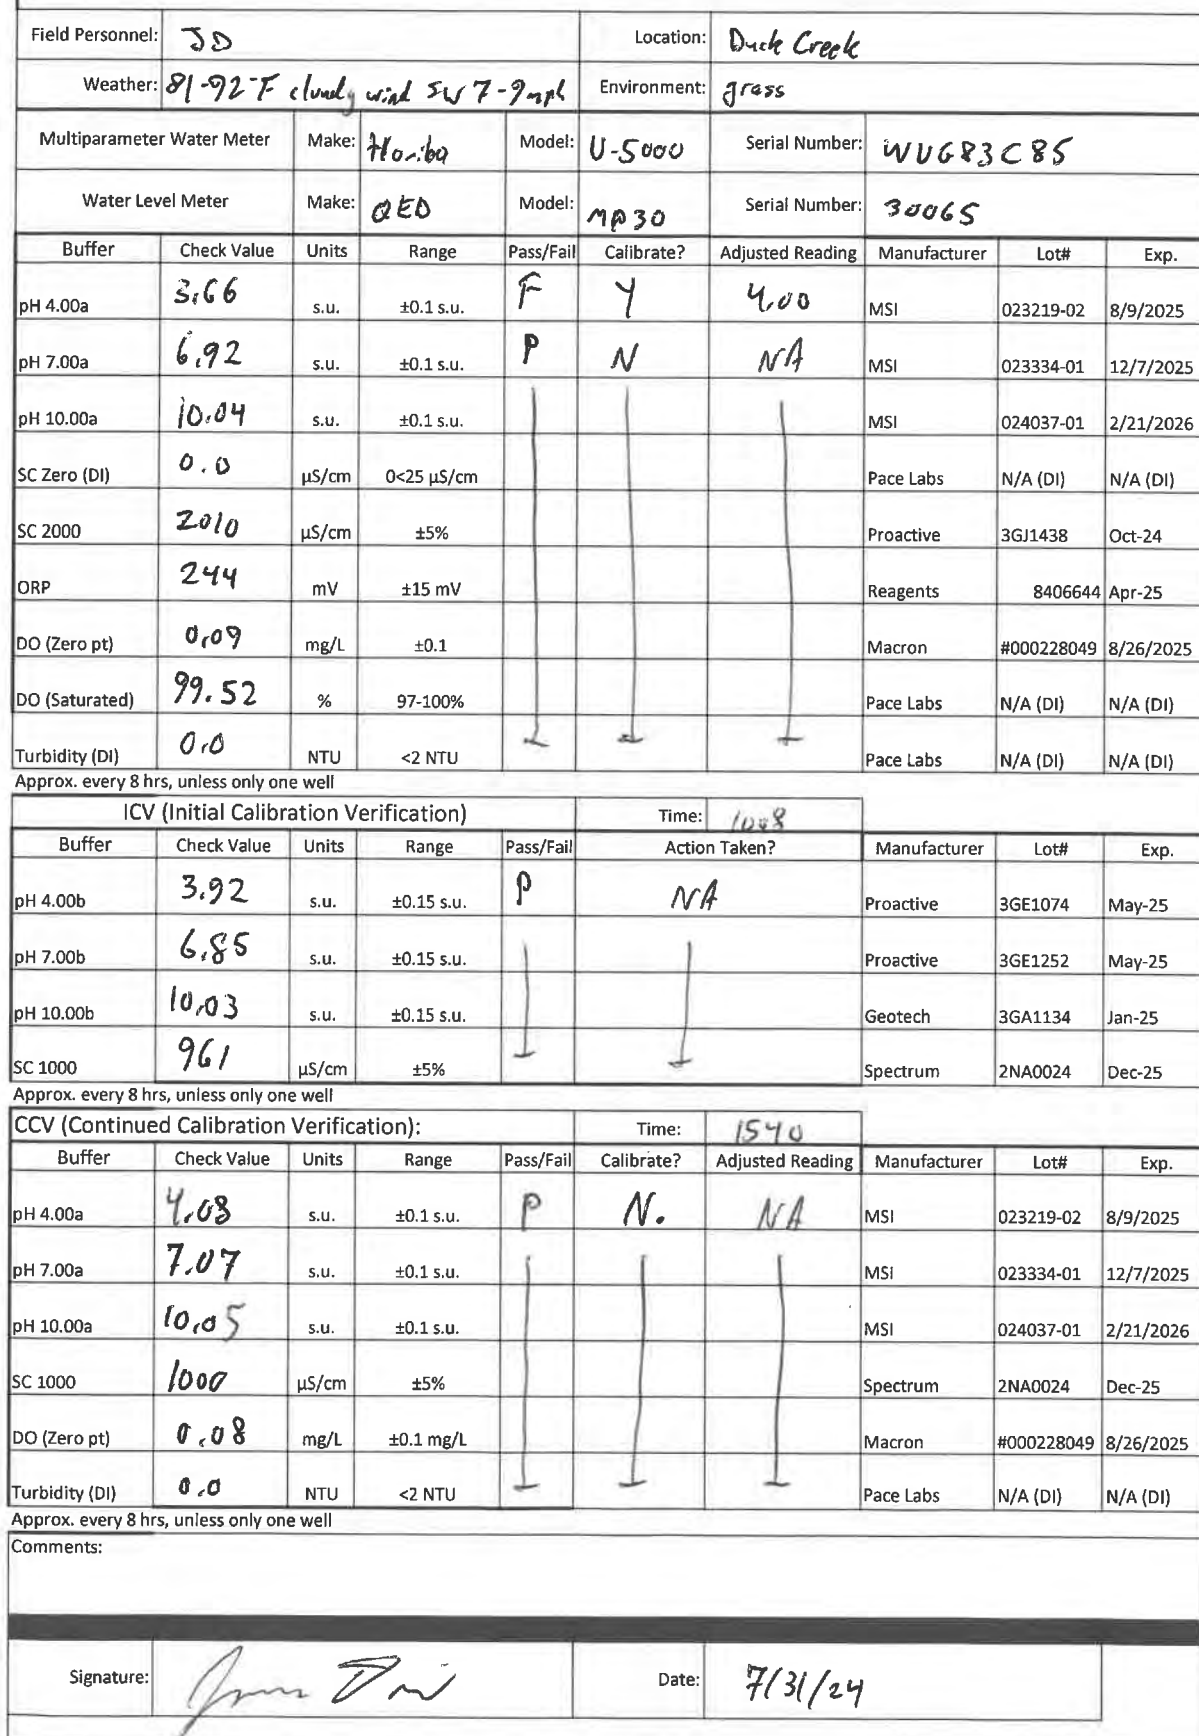 Field Personnel: JD Location: Duck Creek
Weather: 81-92°F cloudy wind SW 7-9mph Environment: grass
Multiparameter Water Meter Make: Horiba Model: U-5000 Serial Number: WUG83C85
Water Level Meter Make: QED Model: MP30 Serial Number: 30065
Buffer Check Value Units Range Pass/Fail Calibrate? Adjusted Reading Manufacturer Lot# Exp.
pH 4.00a 3.66 s.u. ±0.1 s.u. F Y 4.00 MSI 023219-02 8/9/2025
pH 7.00a 6.92 s.u. ±0.1 s.u. P N NA MSI 023334-01 12/7/2025
pH 10.00a 10.04 s.u. ±0.1 s.u. MSI 024037-01 2/21/2026
SC Zero (DI) 0.0 µS/cm 0<25 µS/cm Pace Labs N/A (DI) N/A (DI)
SC 2000 2010 µS/cm ±5% Proactive 3GJ1438 Oct-24
ORP 244 mV ±15 mV Reagents 8406644 Apr-25
DO (Zero pt) 0.09 mg/L ±0.1 Macron #000228049 8/26/2025
DO (Saturated) 99.52 % 97-100% Pace Labs N/A (DI) N/A (DI)
Turbidity (DI) 0.0 NTU <2 NTU Pace Labs N/A (DI) N/A (DI)
Approx. every 8 hrs, unless only one well
ICV (Initial Calibration Verification) Time: 1008
Buffer Check Value Units Range Pass/Fail Action Taken? Manufacturer Lot# Exp.
pH 4.00b 3.92 s.u. ±0.15 s.u. P NA Proactive 3GE1074 May-25
pH 7.00b 6.85 s.u. ±0.15 s.u. Proactive 3GE1252 May-25
pH 10.00b 10.03 s.u. ±0.15 s.u. Geotech 3GA1134 Jan-25
SC 1000 961 µS/cm ±5% Spectrum 2NA0024 Dec-25
Approx. every 8 hrs, unless only one well
CCV (Continued Calibration Verification): Time: 1540
Buffer Check Value Units Range Pass/Fail Calibrate? Adjusted Reading Manufacturer Lot# Exp.
pH 4.00a 4.08 s.u. ±0.1 s.u. P N. NA MSI 023219-02 8/9/2025
pH 7.00a 7.07 s.u. ±0.1 s.u. MSI 023334-01 12/7/2025
pH 10.00a 10.05 s.u. ±0.1 s.u. MSI 024037-01 2/21/2026
SC 1000 1000 µS/cm ±5% Spectrum 2NA0024 Dec-25
DO (Zero pt) 0.08 mg/L ±0.1 mg/L Macron #000228049 8/26/2025
Turbidity (DI) 0.0 NTU <2 NTU Pace Labs N/A (DI) N/A (DI)
Approx. every 8 hrs, unless only one well
Comments:
Signature: Date: 7/31/24